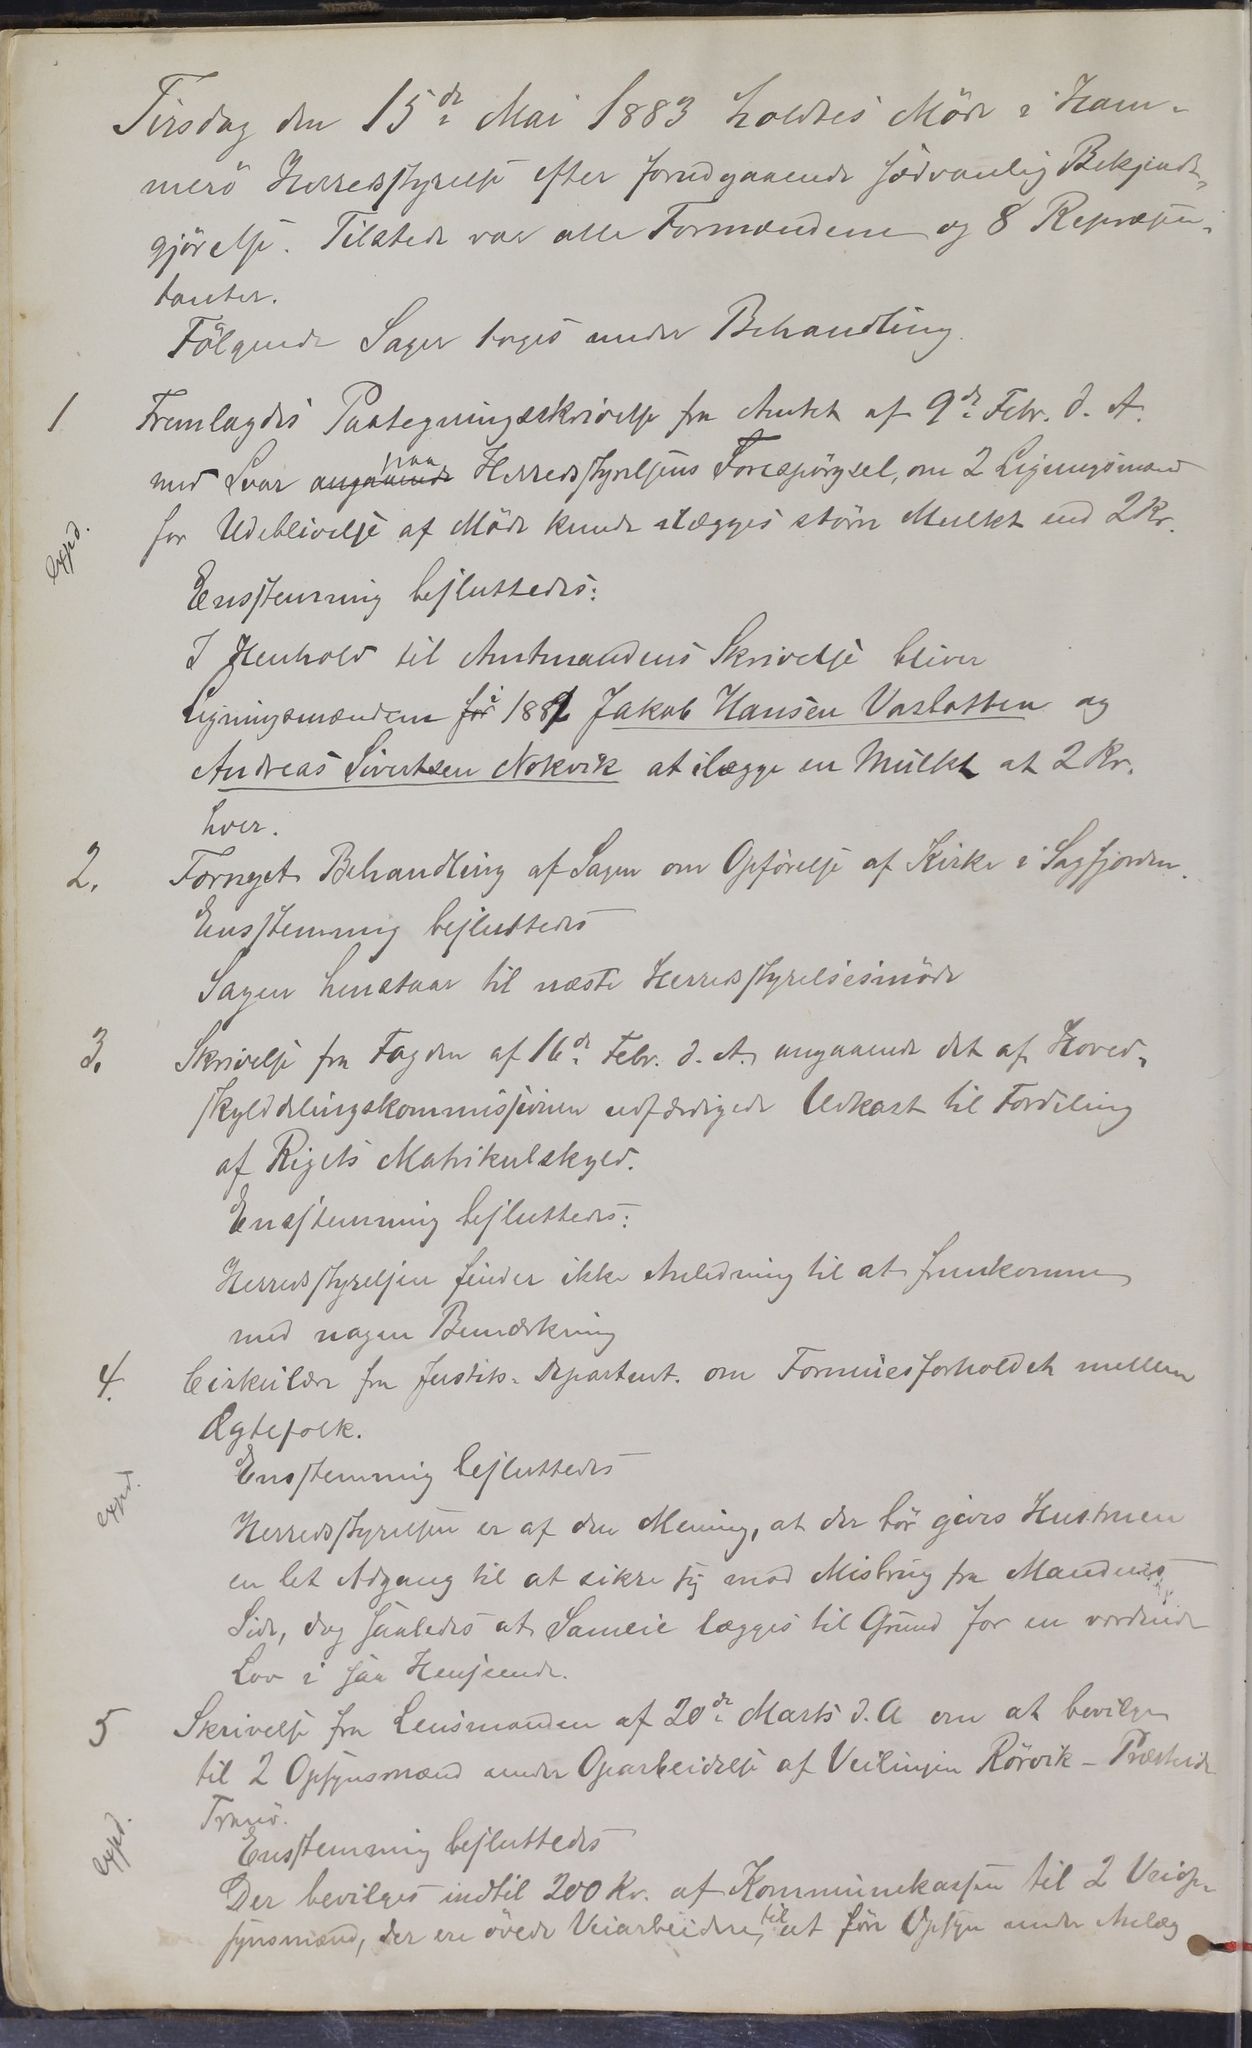 Tirsdag den 15de Mai 1883 holdtes Möde i Ham-
merö Herredsstyrelse efter forudgaaende sædvanlig Bekjendt-
gjörelse. Tilstede var alle Formændene og 8 Repræsen-
tanter.
Fölgende Sager toges under Behandling.
1 Fremlagdes Paategningsskrivelse fra Amtet af 9de Febr. d. A.
med Svar angaaende paa Herredsstyrelsens Forespörgsel, om 2 Ligningsmænd
for Udeblivelse af Möde kunde ilægges större Mulkt end 2 Kr.
expd.
Enstemmig besluttedes:
I Henhold til Amtmandens Skrivelse bliver
Ligningsmændene for i 1882 Jakob Hansen Vaslotten og
Andreas Sivertsen Nokvik at ilægge en Mulkt at 2 Kr.
hver.
2. Fornyet Behandling af Sagen om Opförelse af Kirke i Sagfjorden.
Ensstemmig besluttedes
Sagen henstaar til næste Herredsstyrelsesmöde
3. Skrivelse fra Fogden af 16de Febr. d. A. angaaende det af Hoved-
skylddelingskommissionen udfærdigede Udkast til Fordeling
af Rigets Matrikulskyld.
Ensstemmig besluttedes:
Herredsstyrelsen finder ikke Anledning til at fremkomme
med nogen Bemærkning
4. Cirkulære fra Justits-Departent. om Formuesforholdet mellem
Ægtefolk.
Ensstemmig besluttedes
expd.
Herredsstyrelsen er af den Mening, at der bör gives Hustruen
en let Adgang til at sikre sig mod Misbrug fra Mandens
Side, dog saaledes at Sameie lægges til Grund for en vordende
Lov i saa Henseende.
5 Skrivelse fra Lensmanden af 20de Marts d. A om at bevilge
til 2 Opsynsmænd under Oparbeidelse af Veilinjen Rörvik - Præsteide
Tranö.
Ensstemmig besluttedes
expd.
Der bevilges indtil 200 Kr. af Kommunekassen til 2 Veiop-
synsmænd, der ere övede Veiarbeidere, til at före Opsyn under Anlæg